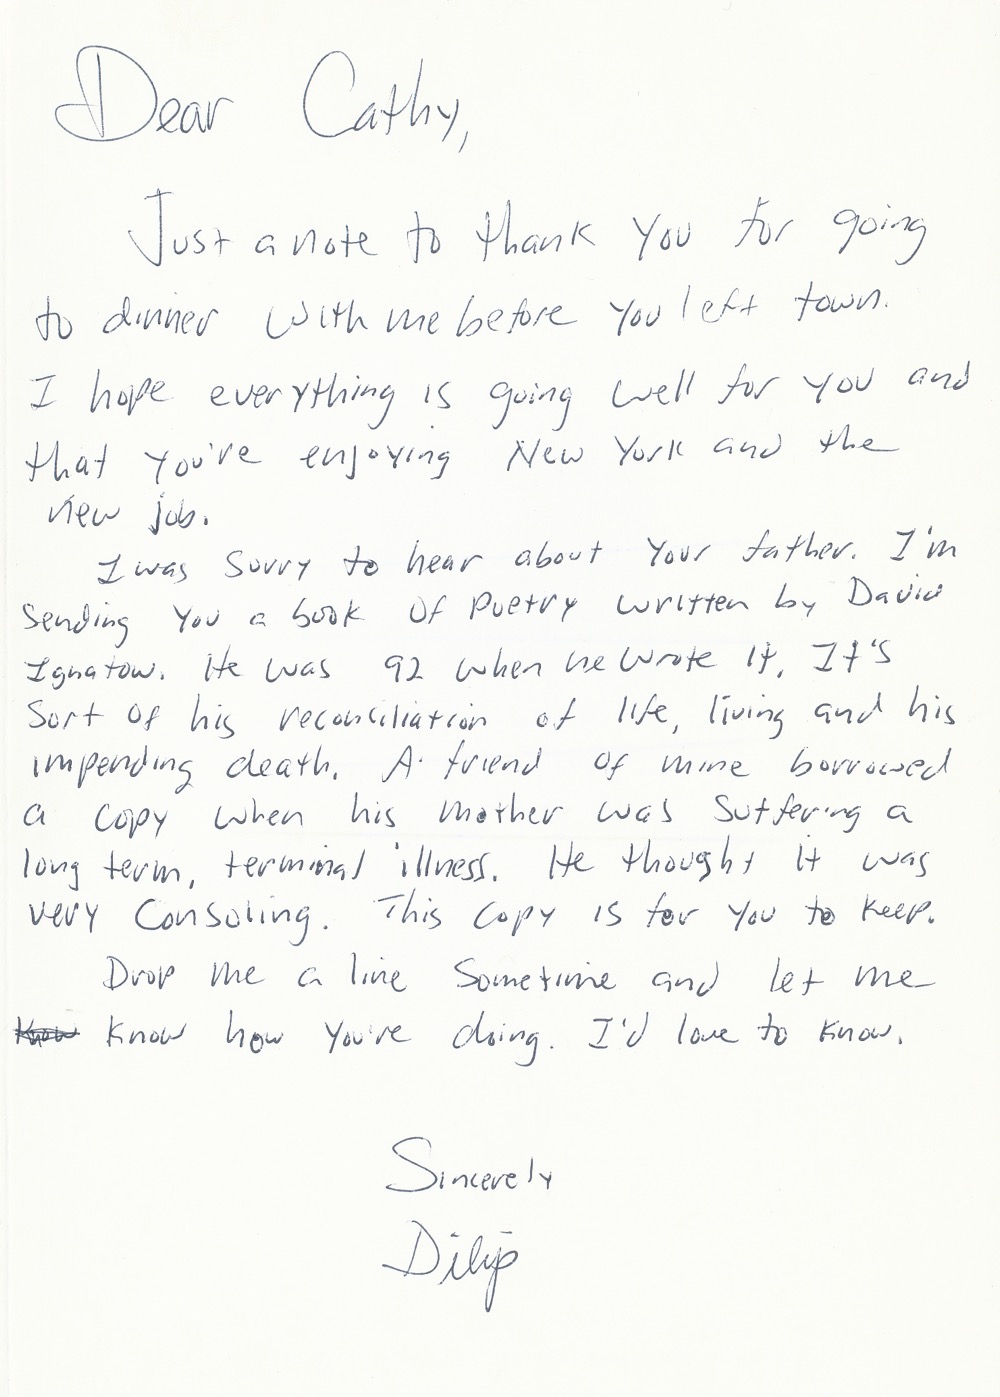 Dear Cathy,
Just a note to thank you for going
to dinner with me before you left town.
I hope everything is going well for you and
that you're enjoying New York and the
new job.
I was sorry to hear about your father. I'm
sending you a book of poetry written by David
Ignatow. He was 92 when he wrote it. It's
sort of his reconciliation of life, living and his
impending death. A friend of mine borrowed
a copy when his mother was suffering a
long term, terminal illness. He thought it was
very consoling. This copy is for you to keep.
Drop me a line sometime and let me
Know know how you're doing. I'd love to know.
Sincerely
Dilip